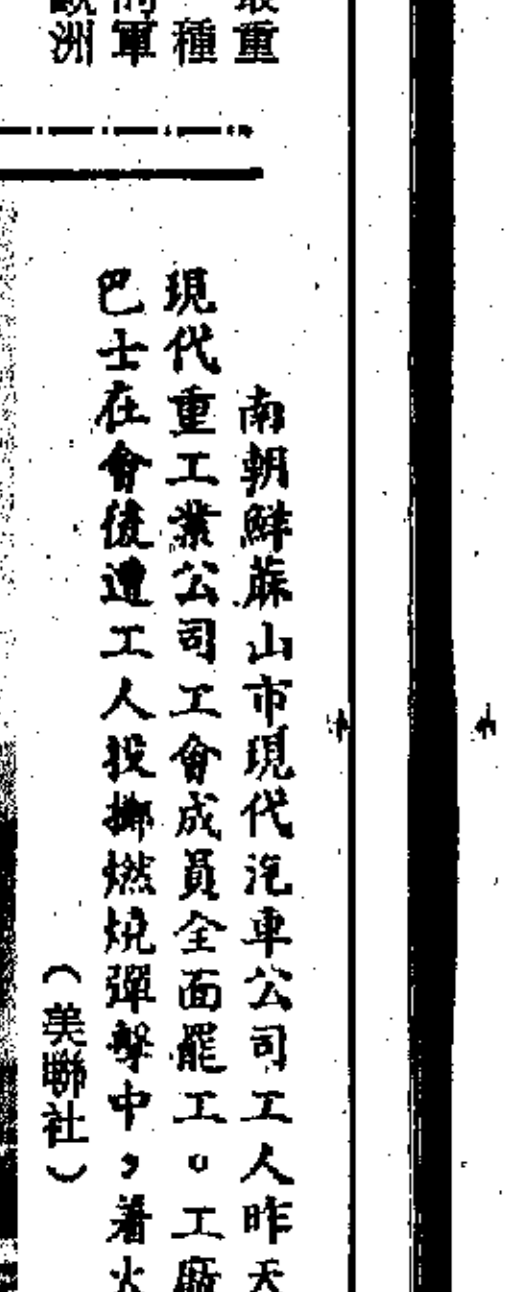 重
種
軍
歐洲
南朝鮮蔴山市現代汽車公司工人昨天
現代重工業公司工會成員全面罷工。工廠
巴士在會後遭工人投擲燃燒彈擊中，着火
（美聯社）